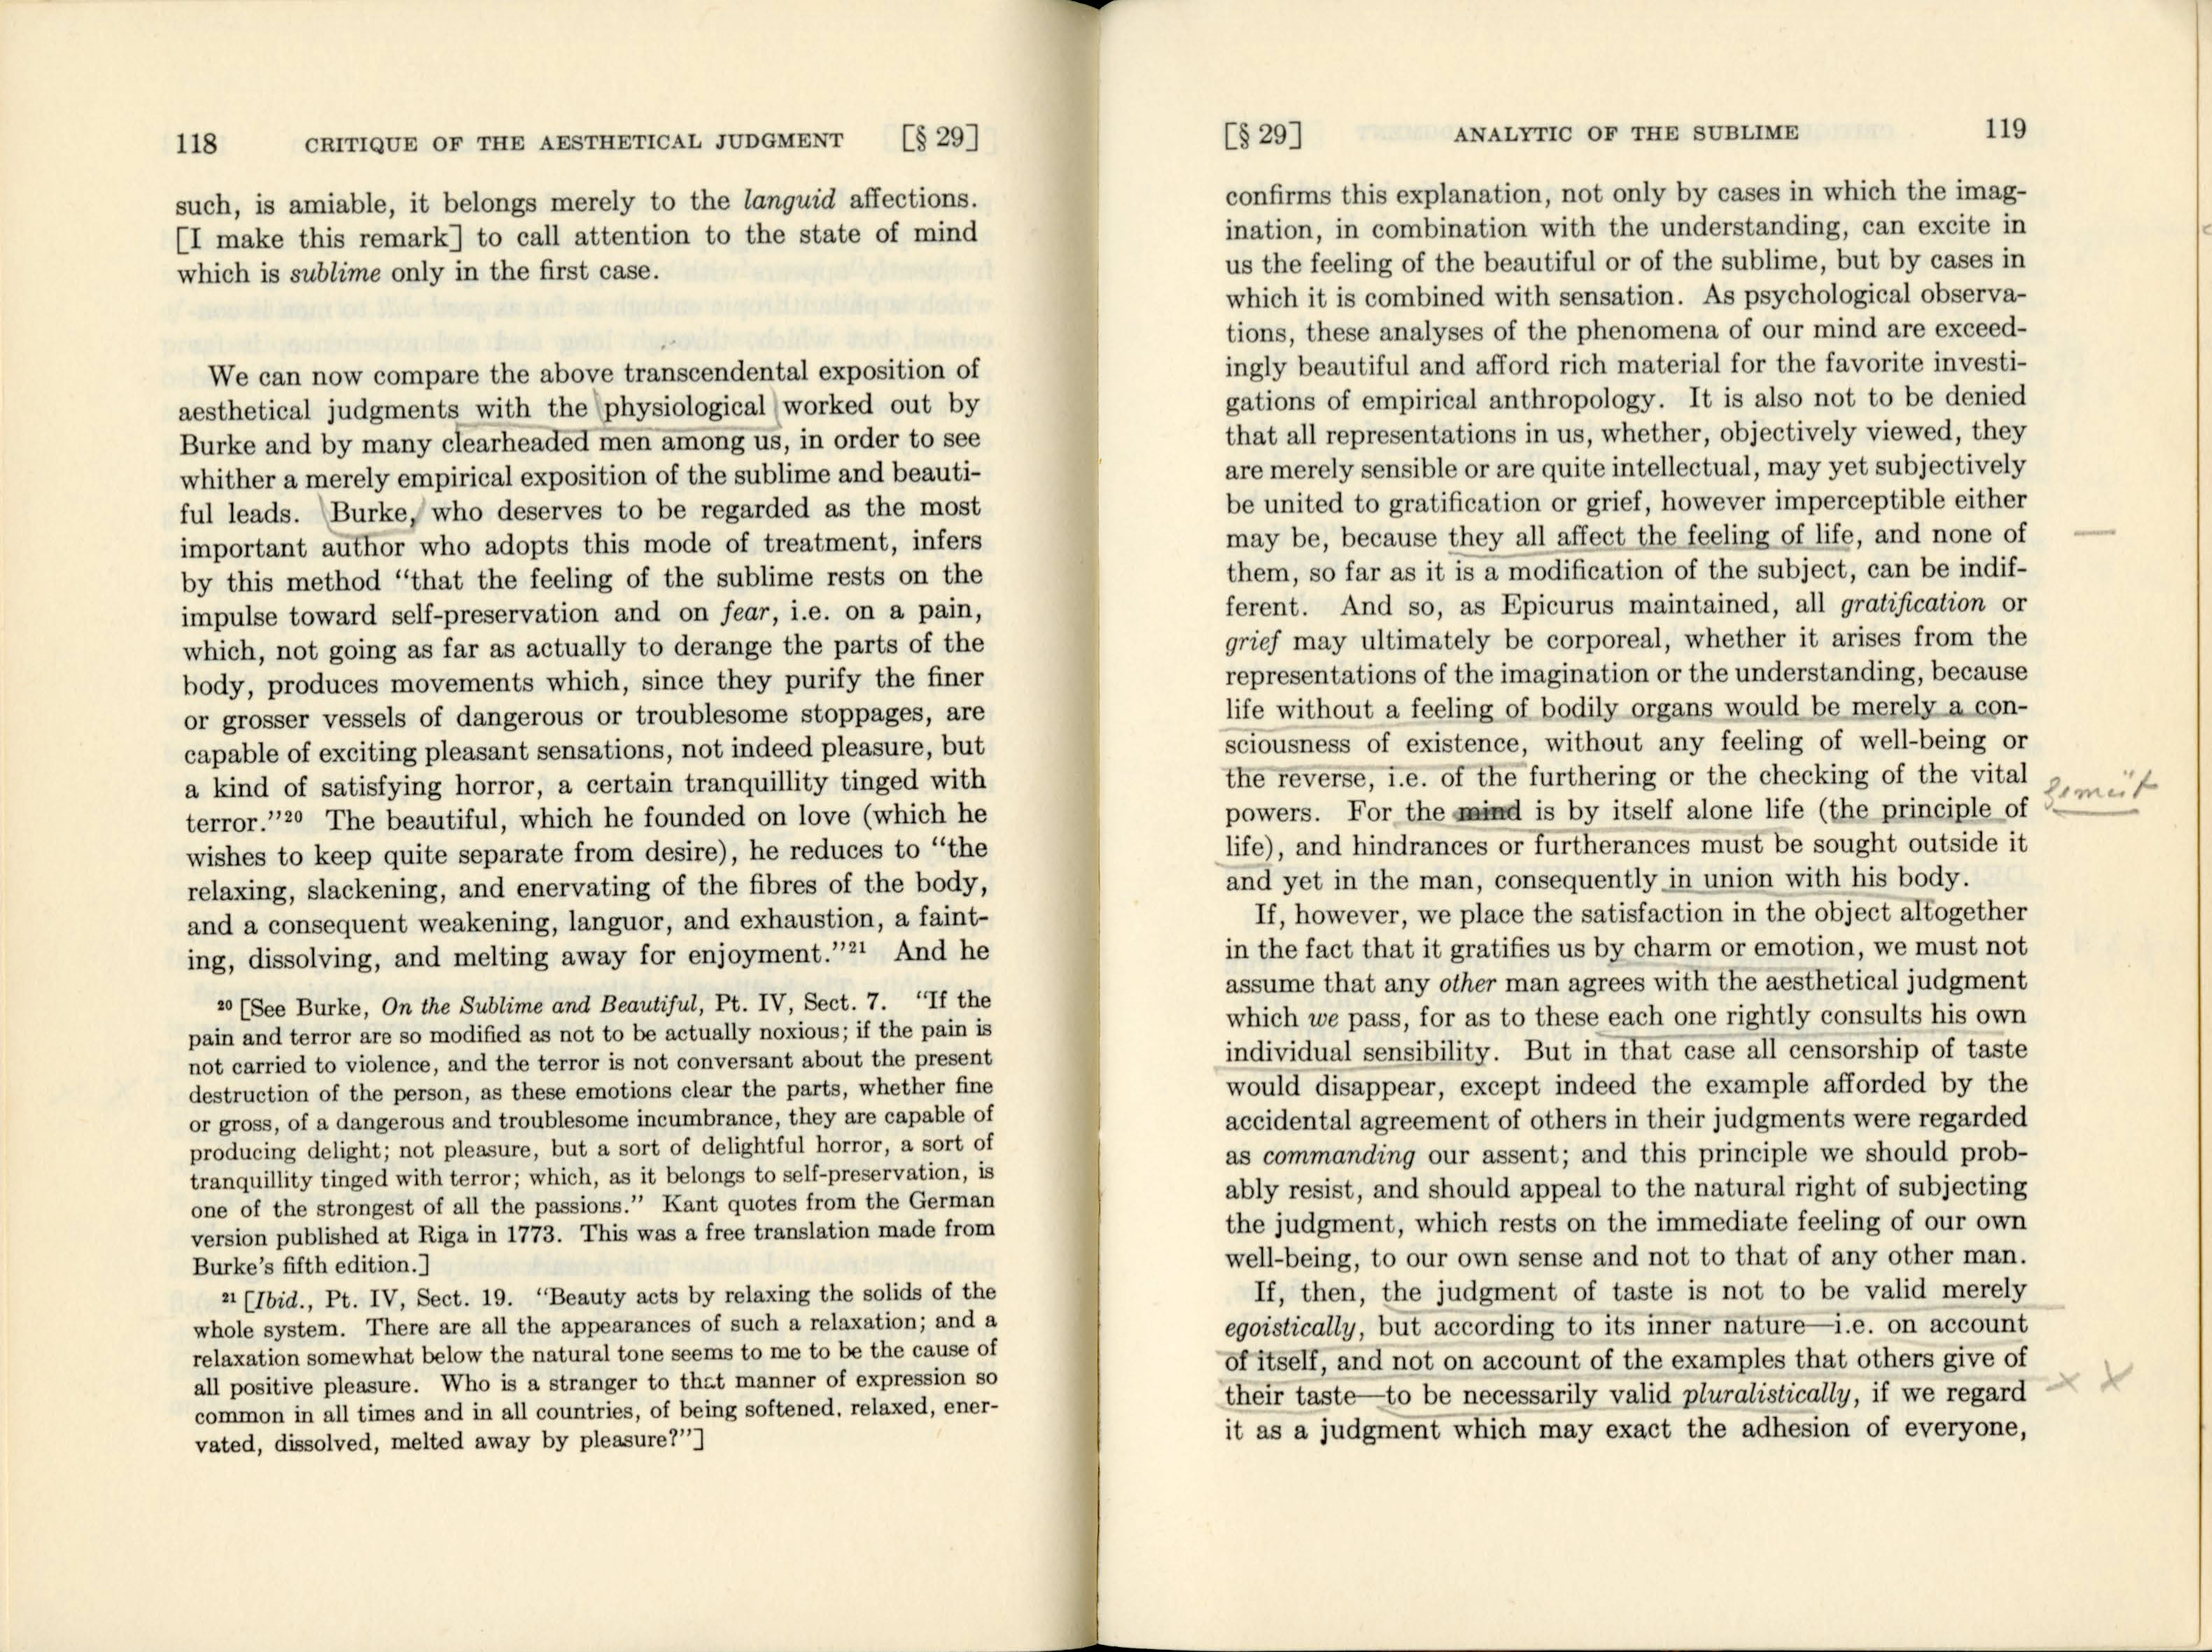 118 CRITIQUE OF THE AESTHETICAL JUDGMENT [§ 29]
such, is amiable, it belongs merely to the languid affections.
[I make this remark] to call attention to the state of mind
which is sublime only in the first case.
We can now compare the above transcendental exposition of
aesthetical judgments with the physiological worked out by
Burke and by many clearheaded men among us, in order to see
whither a merely empirical exposition of the sublime and beauti-
ful leads. Burke, who deserves to be regarded as the most
important author who adopts this mode of treatment, infers
by this method “that the feeling of the sublime rests on the
impulse toward self-preservation and on fear, i.e. on a pain,
which, not going as far as actually to derange the parts of the
body, produces movements which, since they purify the finer
or grosser vessels of dangerous or troublesome stoppages, are
capable of exciting pleasant sensations, not indeed pleasure, but
a kind of satisfying horror, a certain tranquillity tinged with
terror.”²⁰ The beautiful, which he founded on love (which he
wishes to keep quite separate from desire), he reduces to “the
relaxing, slackening, and enervating of the fibres of the body,
and a consequent weakening, languor, and exhaustion, a faint-
ing, dissolving, and melting away for enjoyment.”²¹ And he
²⁰ [See Burke, On the Sublime and Beautiful, Pt. IV, Sect. 7. “If the
pain and terror are so modified as not to be actually noxious; if the pain is
not carried to violence, and the terror is not conversant about the present
destruction of the person, as these emotions clear the parts, whether fine
or gross, of a dangerous and troublesome incumbrance, they are capable of
producing delight; not pleasure, but a sort of delightful horror, a sort of
tranquillity tinged with terror; which, as it belongs to self-preservation, is
one of the strongest of all the passions.” Kant quotes from the German
version published at Riga in 1773. This was a free translation made from
Burke’s fifth edition.]
²¹ [Ibid., Pt. IV, Sect. 19. “Beauty acts by relaxing the solids of the
whole system. There are all the appearances of such a relaxation; and a
relaxation somewhat below the natural tone seems to me to be the cause of
all positive pleasure. Who is a stranger to that manner of expression so
common in all times and in all countries, of being softened, relaxed, ener-
vated, dissolved, melted away by pleasure?”]
[§ 29] ANALYTIC OF THE SUBLIME 119
confirms this explanation, not only by cases in which the imag-
ination, in combination with the understanding, can excite in
us the feeling of the beautiful or of the sublime, but by cases in
which it is combined with sensation. As psychological observa-
tions, these analyses of the phenomena of our mind are exceed-
ingly beautiful and afford rich material for the favorite investi-
gations of empirical anthropology. It is also not to be denied
that all representations in us, whether, objectively viewed, they
are merely sensible or are quite intellectual, may yet subjectively
be united to gratification or grief, however imperceptible either
may be, because they all affect the feeling of life, and none of
them, so far as it is a modification of the subject, can be indif-
ferent. And so, as Epicurus maintained, all gratification or
grief may ultimately be corporeal, whether it arises from the
representations of the imagination or the understanding, because
life without a feeling of bodily organs would be merely a con-
sciousness of existence, without any feeling of well-being or
the reverse, i.e. of the furthering or the checking of the vital
powers. For the mind is by itself alone life (the principle of
Gemüt
life), and hindrances or furtherances must be sought outside it
and yet in the man, consequently in union with his body.
If, however, we place the satisfaction in the object altogether
in the fact that it gratifies us by charm or emotion, we must not
assume that any other man agrees with the aesthetical judgment
which we pass, for as to these each one rightly consults his own
individual sensibility. But in that case all censorship of taste
would disappear, except indeed the example afforded by the
accidental agreement of others in their judgments were regarded
as commanding our assent; and this principle we should prob-
ably resist, and should appeal to the natural right of subjecting
the judgment, which rests on the immediate feeling of our own
well-being, to our own sense and not to that of any other man.
If, then, the judgment of taste is not to be valid merely
egoistically, but according to its inner nature—i.e. on account
of itself, and not on account of the examples that others give of
their taste—to be necessarily valid pluralistically, if we regard x x
it as a judgment which may exact the adhesion of everyone,